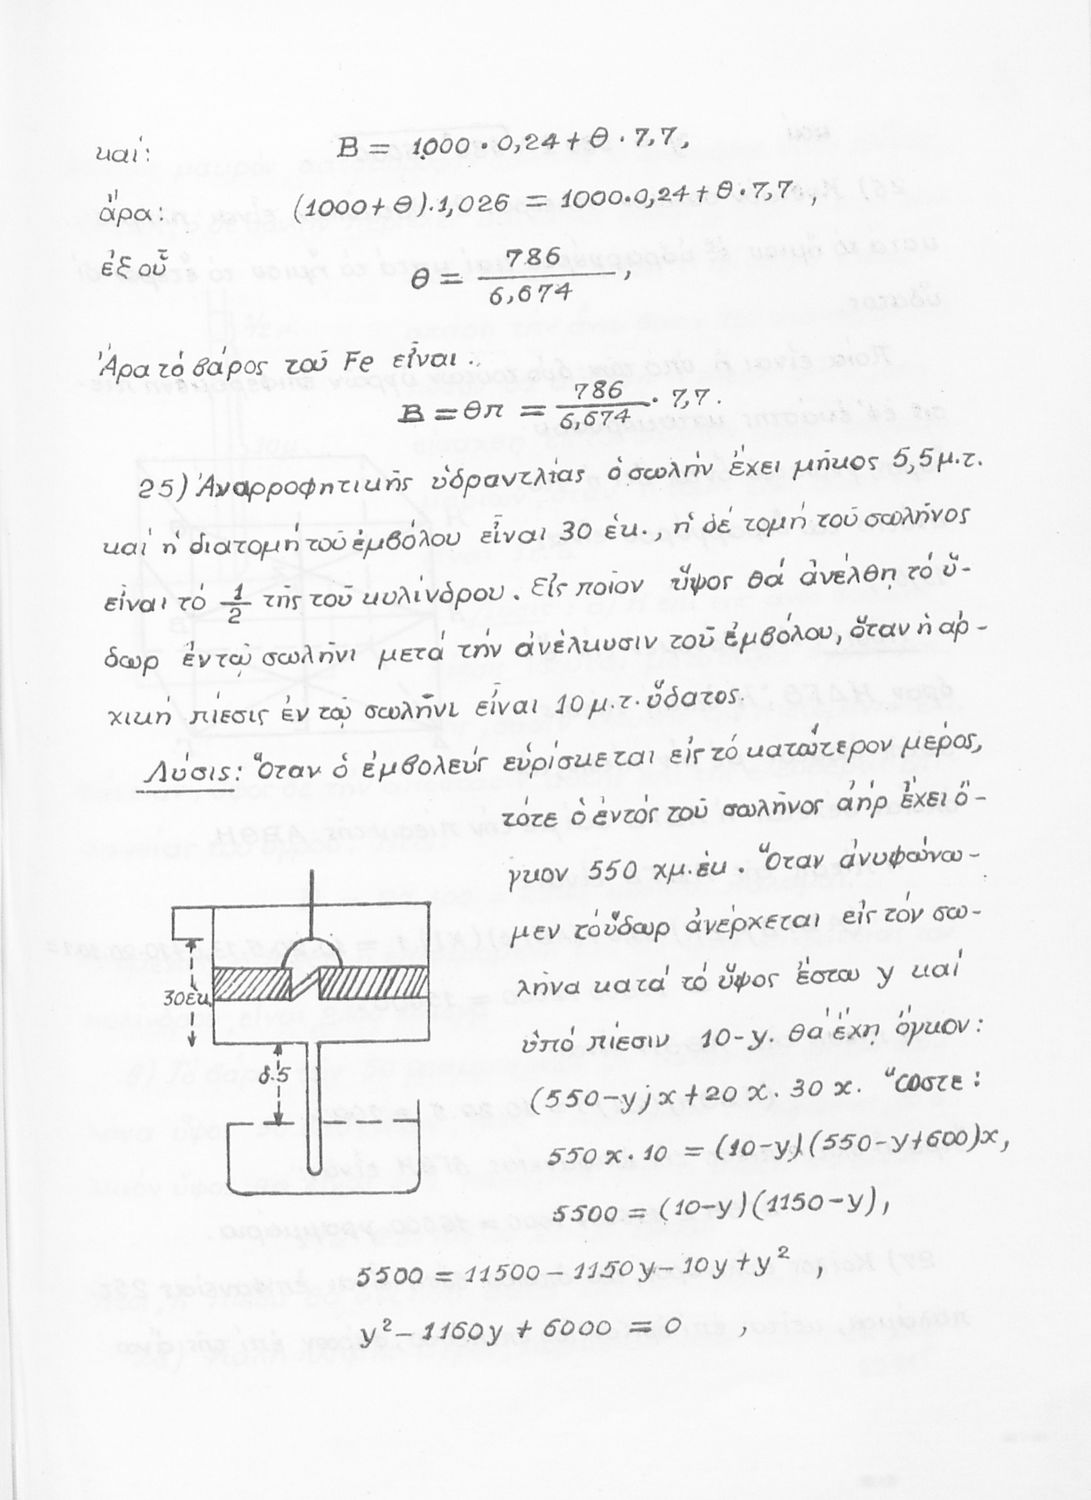 καί: B = 1000 · 0,24 + θ · 7,7,
ἄρα: (1000 + θ).1,026 = 1000.0,24 + θ · 7,7,
ἐξ οὗ θ = 786 / 6,674 ,
Ἄρα τό βάρος τοῦ Fe εἶναι :
B = θπ = 786 / 6,674 · 7,7.
25) Ἀναρροφητικῆς ὑδραντλίας ὁ σωλήν ἔχει μῆκος 5,5 μ.τ.
καί ἡ διατομή τοῦ ἐμβόλου εἶναι 30 ἑκ., ἡ δέ τομή τοῦ σωλῆνος
εἶναι τό 1/2 τῆς τοῦ κυλίνδρου. Εἰς ποῖον ὕψος θά ἀνέλθῃ τό ὕ-
δωρ ἐν τῷ σωλῆνι μετά τήν ἀνέλκυσιν τοῦ ἐμβόλου, ὅταν ἡ αρ-
χική πίεσις ἐν τῷ σωλῆνι εἶναι 10 μ.τ. ὕδατος.
Λύσις: Ὅταν ὁ ἐμβολεύς εὑρίσκεται εἰς τό κατώτερον μέρος,
τότε ὁ ἐντός τοῦ σωλῆνος ἀήρ ἔχει ὄ-
γκον 550 χμ.ἑκ. Ὅταν ἀνυψώνω-
μεν τό ὕδωρ ἀνέρχεται εἰς τόν σω-
λῆνα κατά τό ὕψος ἔστω y καί
ὑπό πίεσιν 10-y. θά ἔχῃ ὄγκον:
(550-y)x + 20 x. 30 x. Ὥστε:
550 x · 10 = (10-y)(550-y+600)x,
5500 = (10-y)(1150-y),
5500 = 11500 - 1150y - 10y + y² ,
y² - 1160y + 6000 = 0 ,
30ἑκ
δ.5